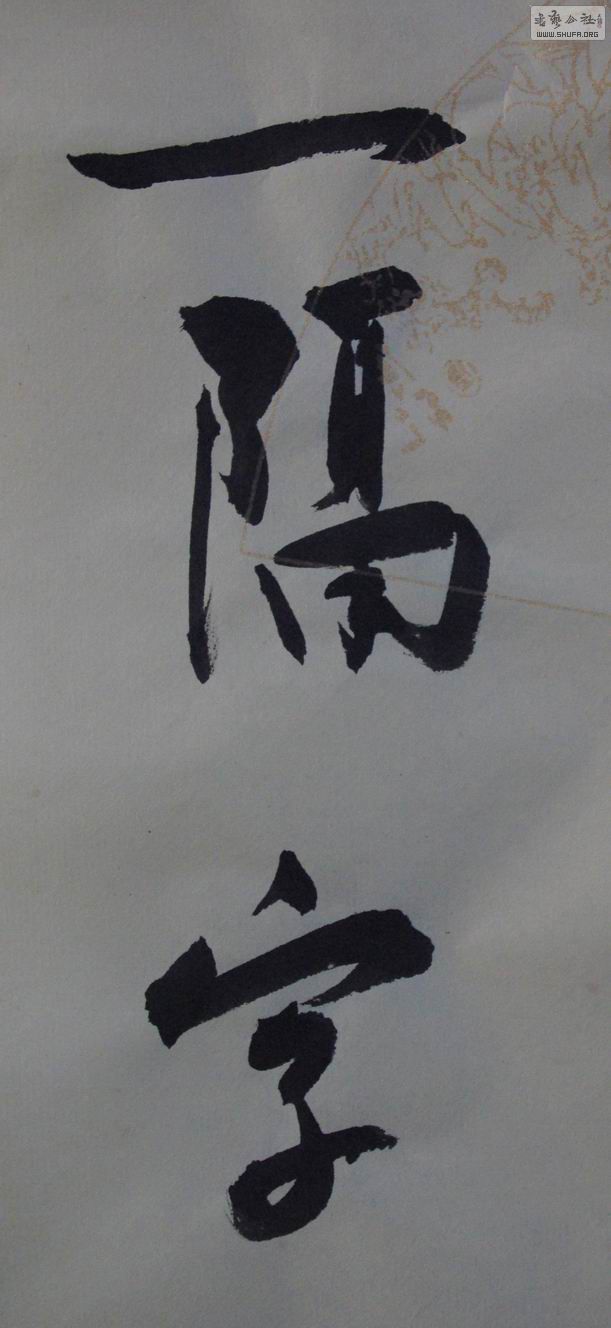 书艺公社
WWW.SHUFA.ORG
一隔字